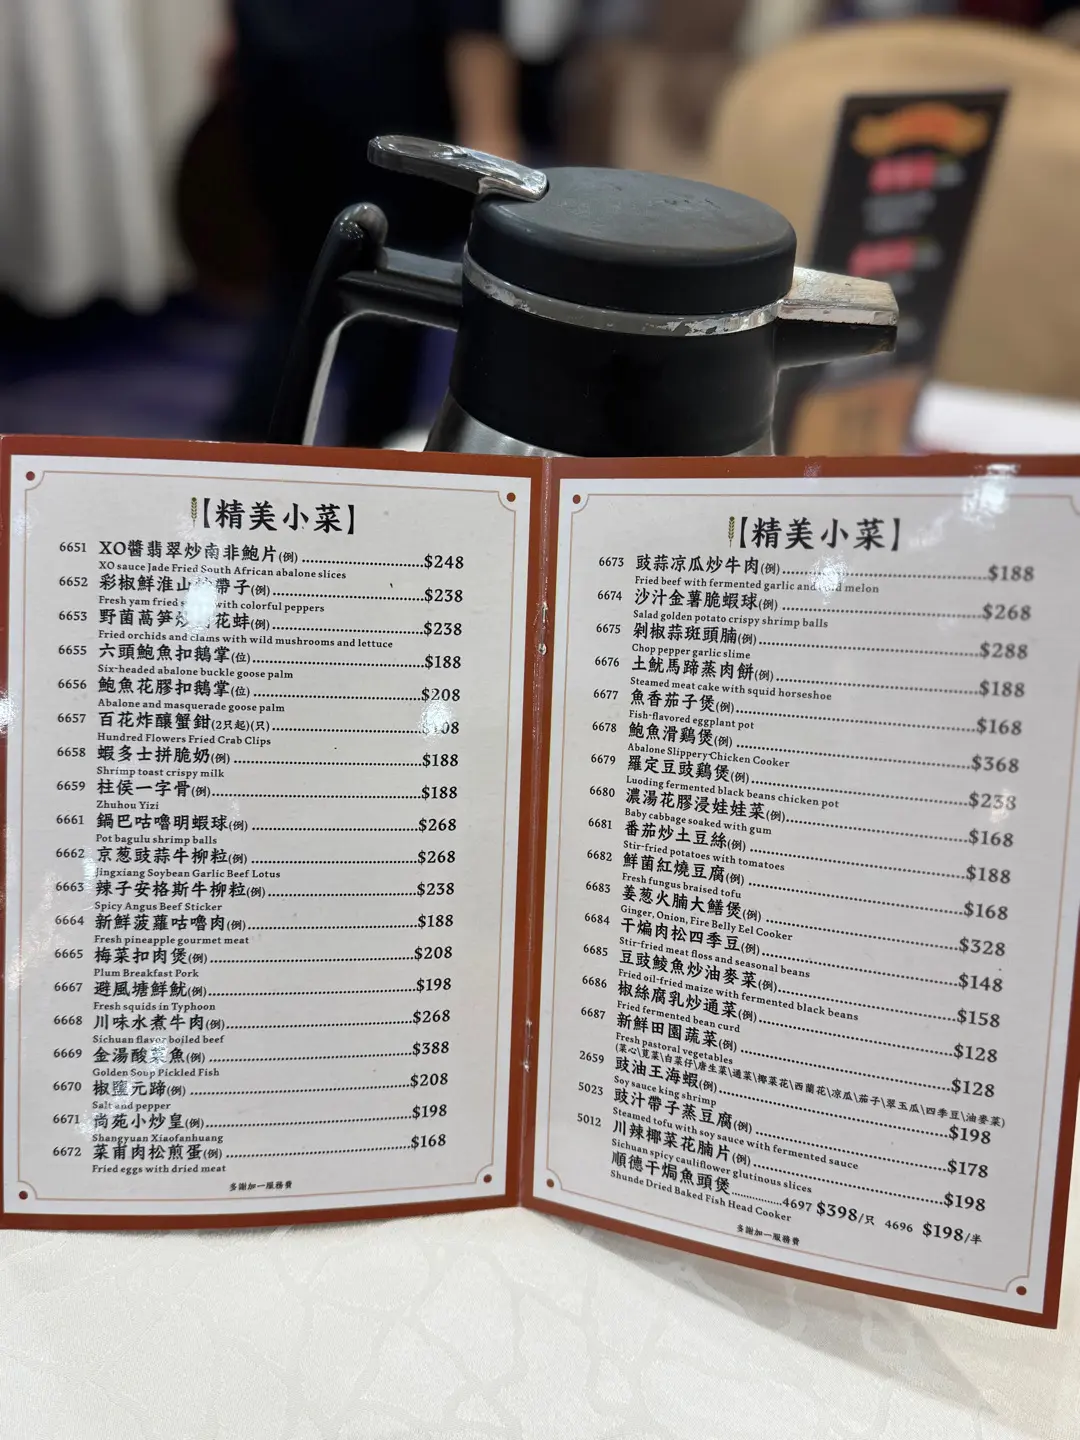 【精美小菜】
6651 XO醬翡翠炒南非鮑片(例) $248
XO sauce Jade Fried South African abalone slices
6652 彩椒鮮淮山 帶子(例) $238
Fresh yam fried with colorful peppers
6653 野菌萵笋炒 花蚌(例) $238
Fried orchids and clams with wild mushrooms and lettuce
6655 六頭鮑魚扣鵝掌(位) $188
Six-headed abalone buckle goose palm
6656 鮑魚花膠扣鵝掌(位) $208
Abalone and masquerade goose palm
6657 百花炸釀蟹鉗(2只起)(只)
Hundred Flowers Fried Crab Clips
6658 蝦多士拼脆奶(例) $188
Shrimp toast crispy milk
6659 柱侯一字骨(例) $188
Zhuhou Yizi
6661 鍋巴咕嚕明蝦球(例) $268
Pot bagulu shrimp balls
6662 京葱豉蒜牛柳粒(例) $268
Jingxiang Soybean Garlic Beef Lotus
6663 辣子安格斯牛柳粒(例) $238
Spicy Angus Beef Sticker
6664 新鮮菠蘿咕嚕肉(例) $188
Fresh pineapple gourmet meat
6665 梅菜扣肉煲(例) $208
Plum Breakfast Pork
6667 避風塘鮮魷(例) $198
Fresh squids in Typhoon
6668 川味水煮牛肉(例) $268
Sichuan flavor boiled beef
6669 金湯酸菜魚(例) $388
Golden Soup Pickled Fish
6670 椒鹽元蹄(例) $208
Salt and pepper
6671 尚苑小炒皇(例) $198
Shangyuan Xiaofanhuang
6672 菜甫肉松煎蛋(例) $168
Fried eggs with dried meat
多謝加一服務費
【精美小菜】
6673 豉蒜凉瓜炒牛肉(例) $188
Fried beef with fermented garlic and cold melon
6674 沙汁金薯脆蝦球(例) $268
Salad golden potato crispy shrimp balls
6675 剁椒蒜斑頭腩(例) $288
Chop pepper garlic slime
6676 土魷馬蹄蒸肉餅(例) $188
Steamed meat cake with squid horseshoe
6677 魚香茄子煲(例) $168
Fish-flavored eggplant pot
6678 鮑魚滑鷄煲(例) $368
Abalone Slippery Chicken Cooker
6679 羅定豆豉鷄煲(例) $238
Luoding fermented black beans chicken pot
6680 濃湯花膠浸娃娃菜(例) $168
Baby cabbage soaked with gum
6681 番茄炒土豆絲(例) $188
Stir-fried potatoes with tomatoes
6682 鮮菌紅燒豆腐(例) $168
Fresh fungus braised tofu
6683 姜葱火腩大鱔煲(例) $328
Ginger, Onion, Fire Belly Eel Cooker
6684 干煸肉松四季豆(例) $148
Stir-fried meat floss and seasonal beans
6685 豆豉鯪魚炒油麥菜(例) $158
Fried oil-fried maize with fermented black beans
6686 椒絲腐乳炒通菜(例) $128
Fried fermented bean curd
6687 新鮮田園蔬菜(例) $128
Fresh pastoral vegetables
(菜心\莧菜\白菜仔\唐生菜\通菜\椰菜花\西蘭花\凉瓜\茄子\翠玉瓜\四季豆\油麥菜)
2659 豉油王海蝦(例) $198
Soy sauce king shrimp
5023 豉汁帶子蒸豆腐(例) $178
Steamed tofu with soy sauce with fermented sauce
5012 川辣椰菜花腩片(例) $198
Sichuan spicy cauliflower glutinous slices
順德干焗魚頭煲 4697 $398/只 4696 $198/半
Shunde Dried Baked Fish Head Cooker
多謝加一服務費